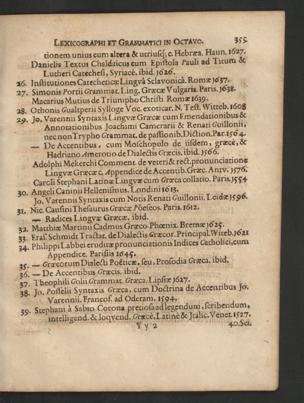 LEXICOGRAPHI ET GRAMMATICI IN OCTAVO. 355
tionem unius cum altera & utriusq; c. Hebræa. Haun. 1627.
Danielis Textus Chaldaicus cum Epistola Pauli ad Titum &
Lutheri Catechesi, Syriacè, ibid. 1626.
26. Institutiones Catecheticæ Lingvâ Sclavonicâ. Romæ 1637.
27. Simonis Portii Grammat. Ling. Græcæ Vulgaris. Paris. 1638.
Macarius Mutius de Triumpho Christi. Romæ 1639.
28. Othonis Gualtperii Sylloge Voc. exoticar. N. Test. Witteb. 1608
29. Jo. Varennii Syntaxis Lingvæ Græcæ cum Emendationibus &
Annotationibus Joachimi Camerarii & Renati Guillonii,
nec non Trypho Grammat. de passionib. Diction. Par. 1564.
— De Accentibus, cum Moschopulo de iisdem, græcè, &
Hadriano Amerotio de Dialectis Græcis, ibid. 1566.
Adolphi Mekerchi Comment. de veteri & rect. pronunciatione
Lingvæ Græcæ c. Appendice de Accentib. Græc. Antv. 1576.
Caroli Stephani Latinæ Lingvæ cum Græca collatio. Paris. 1554
30. Angeli Caninii Hellenismus. Londini 1613.
Jo. Varennii Syntaxis cum Notis Renati Guillonii. Leidæ 1596.
31. Nic. Caussini Thesaurus Græcæ Poëseos. Paris. 1612.
— Radices Lingvæ Græcæ, ibid.
32. Matthiæ Martinii Cadmus Græco Phœnix. Bremæ 1625.
33. Eras. Schmidt Tractat. de Dialectis Græcor. Principal. Witeb. 1621
34. Philippi Labbei eruditæ pronunciationis Indices Catholici, cum
Appendice. Parisiis 1645.
35. — Græcorum Dialecti Poëticæ, seu, Prosodia Græca, ibid.
36. — De Accentibus Græcis. ibid.
37. Theophili Golii Grammat. Græca. Lipsiæ 1627.
38. Jo. Posselii Syntaxis Græca, cum Doctrina de Accentibus Jo.
Varennii. Francof. ad Oderam. 1594.
39. Stephani à Sabio Corona pretiosa d legendum, scribendum,
intelligend. & loqvend. Græcè, Latinè & Italic. Venet. 1527.
Y y 2 40. Sci.